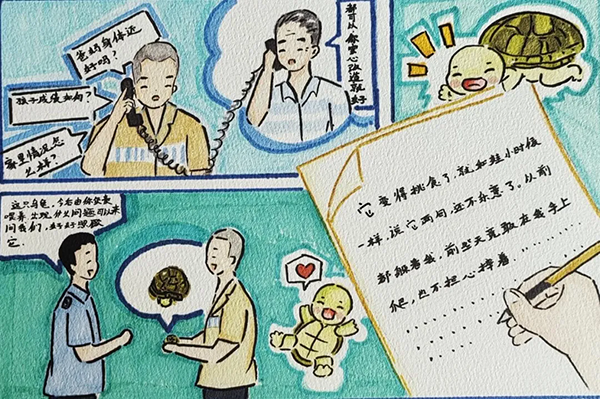 爸妈身体还
好吗？
孩子成绩如何？
家里情况怎
么样？
都可以，你安心改造就好
这只乌龟，今后由你负责
喂养，出现什么问题可以来
问我们，要好好照顾
它
它变得挑食了，就和娃小时候
一样，说它两句，还不乐意了。从前
都躲着我，前些天竟敢在我手上
爬，也不担心摔着…………